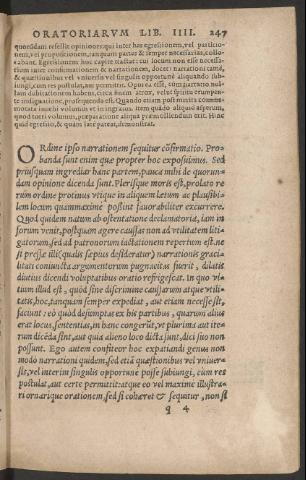 ORATORIARVM LIB. IIII. 247
quorundam refellit opiniones: qui inter hac egressionem, vel partitio-
nem, vel propositionem, tanquam partes & semper necessarias, collo-
cabant. Egressionem hoc capite tractat: cui locum non esse necessa-
rium inter confirmationem & narrationem, docet: narrationi tamē,
& quæstionibus vel vniuersis vel singulis opportunè aliquando sub-
iungi, cum res postulat, aut permittit.
dignatione, prosequendo est. Quando etiam post
quod torti volumus, præparatione aliqua præmolliendum erit. Hinc
quid egressio, & quàm latè pateat, demonstrat.
ORdine ipso narrationem sequitur cōfirmatio. Pro-
banda sunt enim quæ propter hoc exposuimus. Sed
priusquam ingrediar hanc partem, pauca mihi de quorun-
dam opinione dicenda sunt. Plerisque moris est, prolato re
rum ordine protinus vtique in aliquem lætum ac plausibi-
lem locum quammaximè possint fauorabiliter excurrere.
Quod quidem natum ab ostentatione declamatoria, iam in
forum venit, postquam agere caussas non ad vtilitatem liti-
gatorum, sed ad patronorum iactationem repertum est. ne
si pressæ illi (qualis sæpius desideratur) narrationis graci-
litati coniuncta argumentorum pugnacitas fuerit, dilatis
diutius dicendi voluptatibus oratio refrigescat. In quo vi-
tium illud est, quòd sine discrimine caussarum atque vtili-
tatis, hoc, tanquam semper expediat, aut etiam necesse sit,
faciunt: eò quòd desumptas ex his partibus, quarum alius
erat locus, sententias, in hanc congerūt, vt plurima aut ite-
rum dicēda sint, aut quia alieno loco dicta sunt, dici suo non
possunt. Ego autem confiteor hoc expatiandi genus non
modo narrationi quidem, sed etiā quæstionibus vel vniuer-
sis, vel interim singulis opportunè posse subiungi, cùm res
postulat, aut certe permittit: atque eo vel maximè illustra-
ri ornarique orationem, sed si cohæret & sequitur, non si
q 4